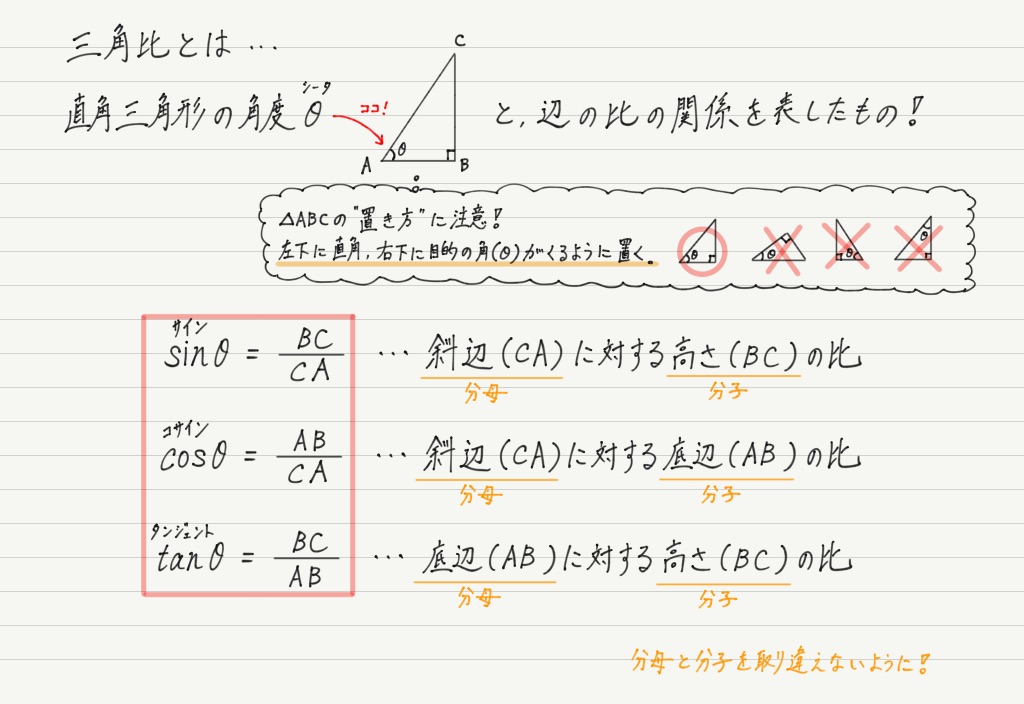 三角比とは…
C
シータ
直角三角形の角度θ ココ! と,辺の比の関係を表したもの!
θ
A B
△ABCの"置き方"に注意!
左下に直角,右下に目的の角(θ)がくるように置く。
θ θ θ θ
サイン
sinθ = BC/CA … 斜辺(CA)に対する高さ(BC)の比
分母 分子
コサイン
cosθ = AB/CA … 斜辺(CA)に対する底辺(AB)の比
分母 分子
タンジェント
tanθ = BC/AB … 底辺(AB)に対する高さ(BC)の比
分母 分子
分母と分子を取り違えないように!